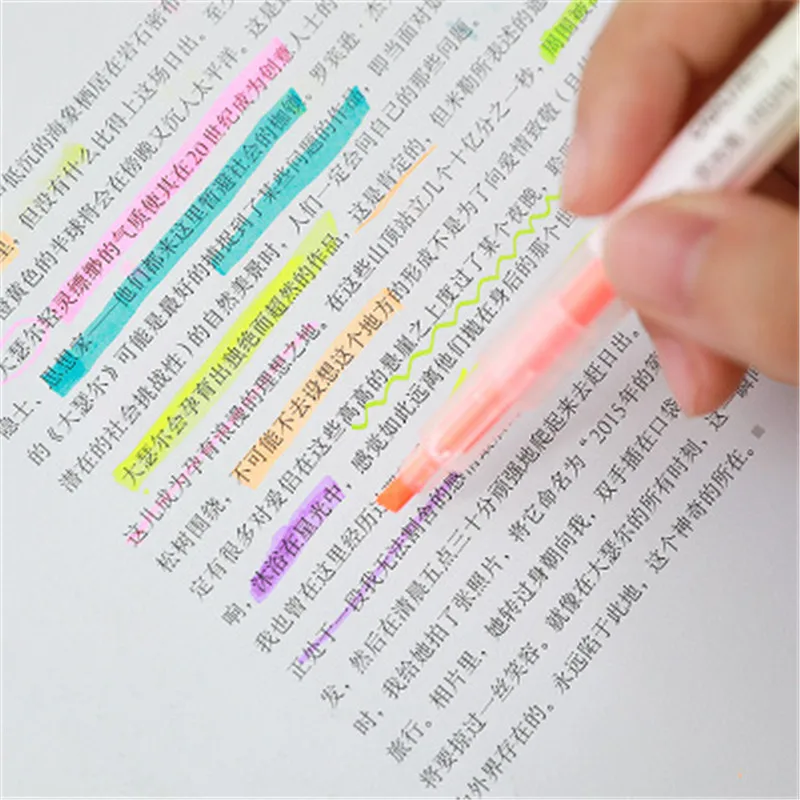 低沉的海象栖居在岩石密布
里，但没有什么比得上这场日出。至少
橙黄色的半球将会在傍晚又沉入太平洋。这是
大瑟尔轻灵缥缈的气质使其在20世纪成为创意人士的
隐士、思想家——他们都来这里暂避社会的枷锁。罗宾逊·杰
的《大瑟尔》可能是最好的捕捉到了某些问题的作品，即当面对如
潜在的社会挑战性）的自然美景时，人们一定会问自己的那些问题。
大瑟尔会孕育出独绝而超然的作品，这是肯定的，但米勒所表述的意
这儿成为孕育浪漫的理想之地。在这些山顶站立几个十亿分之一秒，周围被
松树围绕，不可能不去设想这个地方的形成不是为了向爱情致敬（且
定有很多对爱侣在这些高高的悬崖之上度过了某个夜晚，聆
响，沐浴在星光中，感觉如此远离他们搬在身后的那个
我也曾在这里经历过
正处于一段我无法割舍的感
发，然后在清晨五点三十分顽强地爬起来去赶日出。
时，我给她拍了张照片，将它命名为“2015年的第
旅行。相片里，她转过身朝向我，双手插在口袋
将要掠过一丝笑容。就像在大瑟尔的所有时刻，这一瞬间
外界存在的。永远陷于此地，这个神奇的所在。■